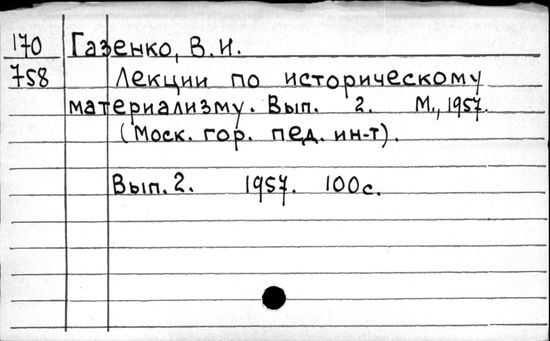 170 Газенко, В.И.
758 Лекции по историческому
материализму. Вып. 2. М., 1957.
(Моск. гор. пед. ин-т).
Вып. 2. 1957. 100с.